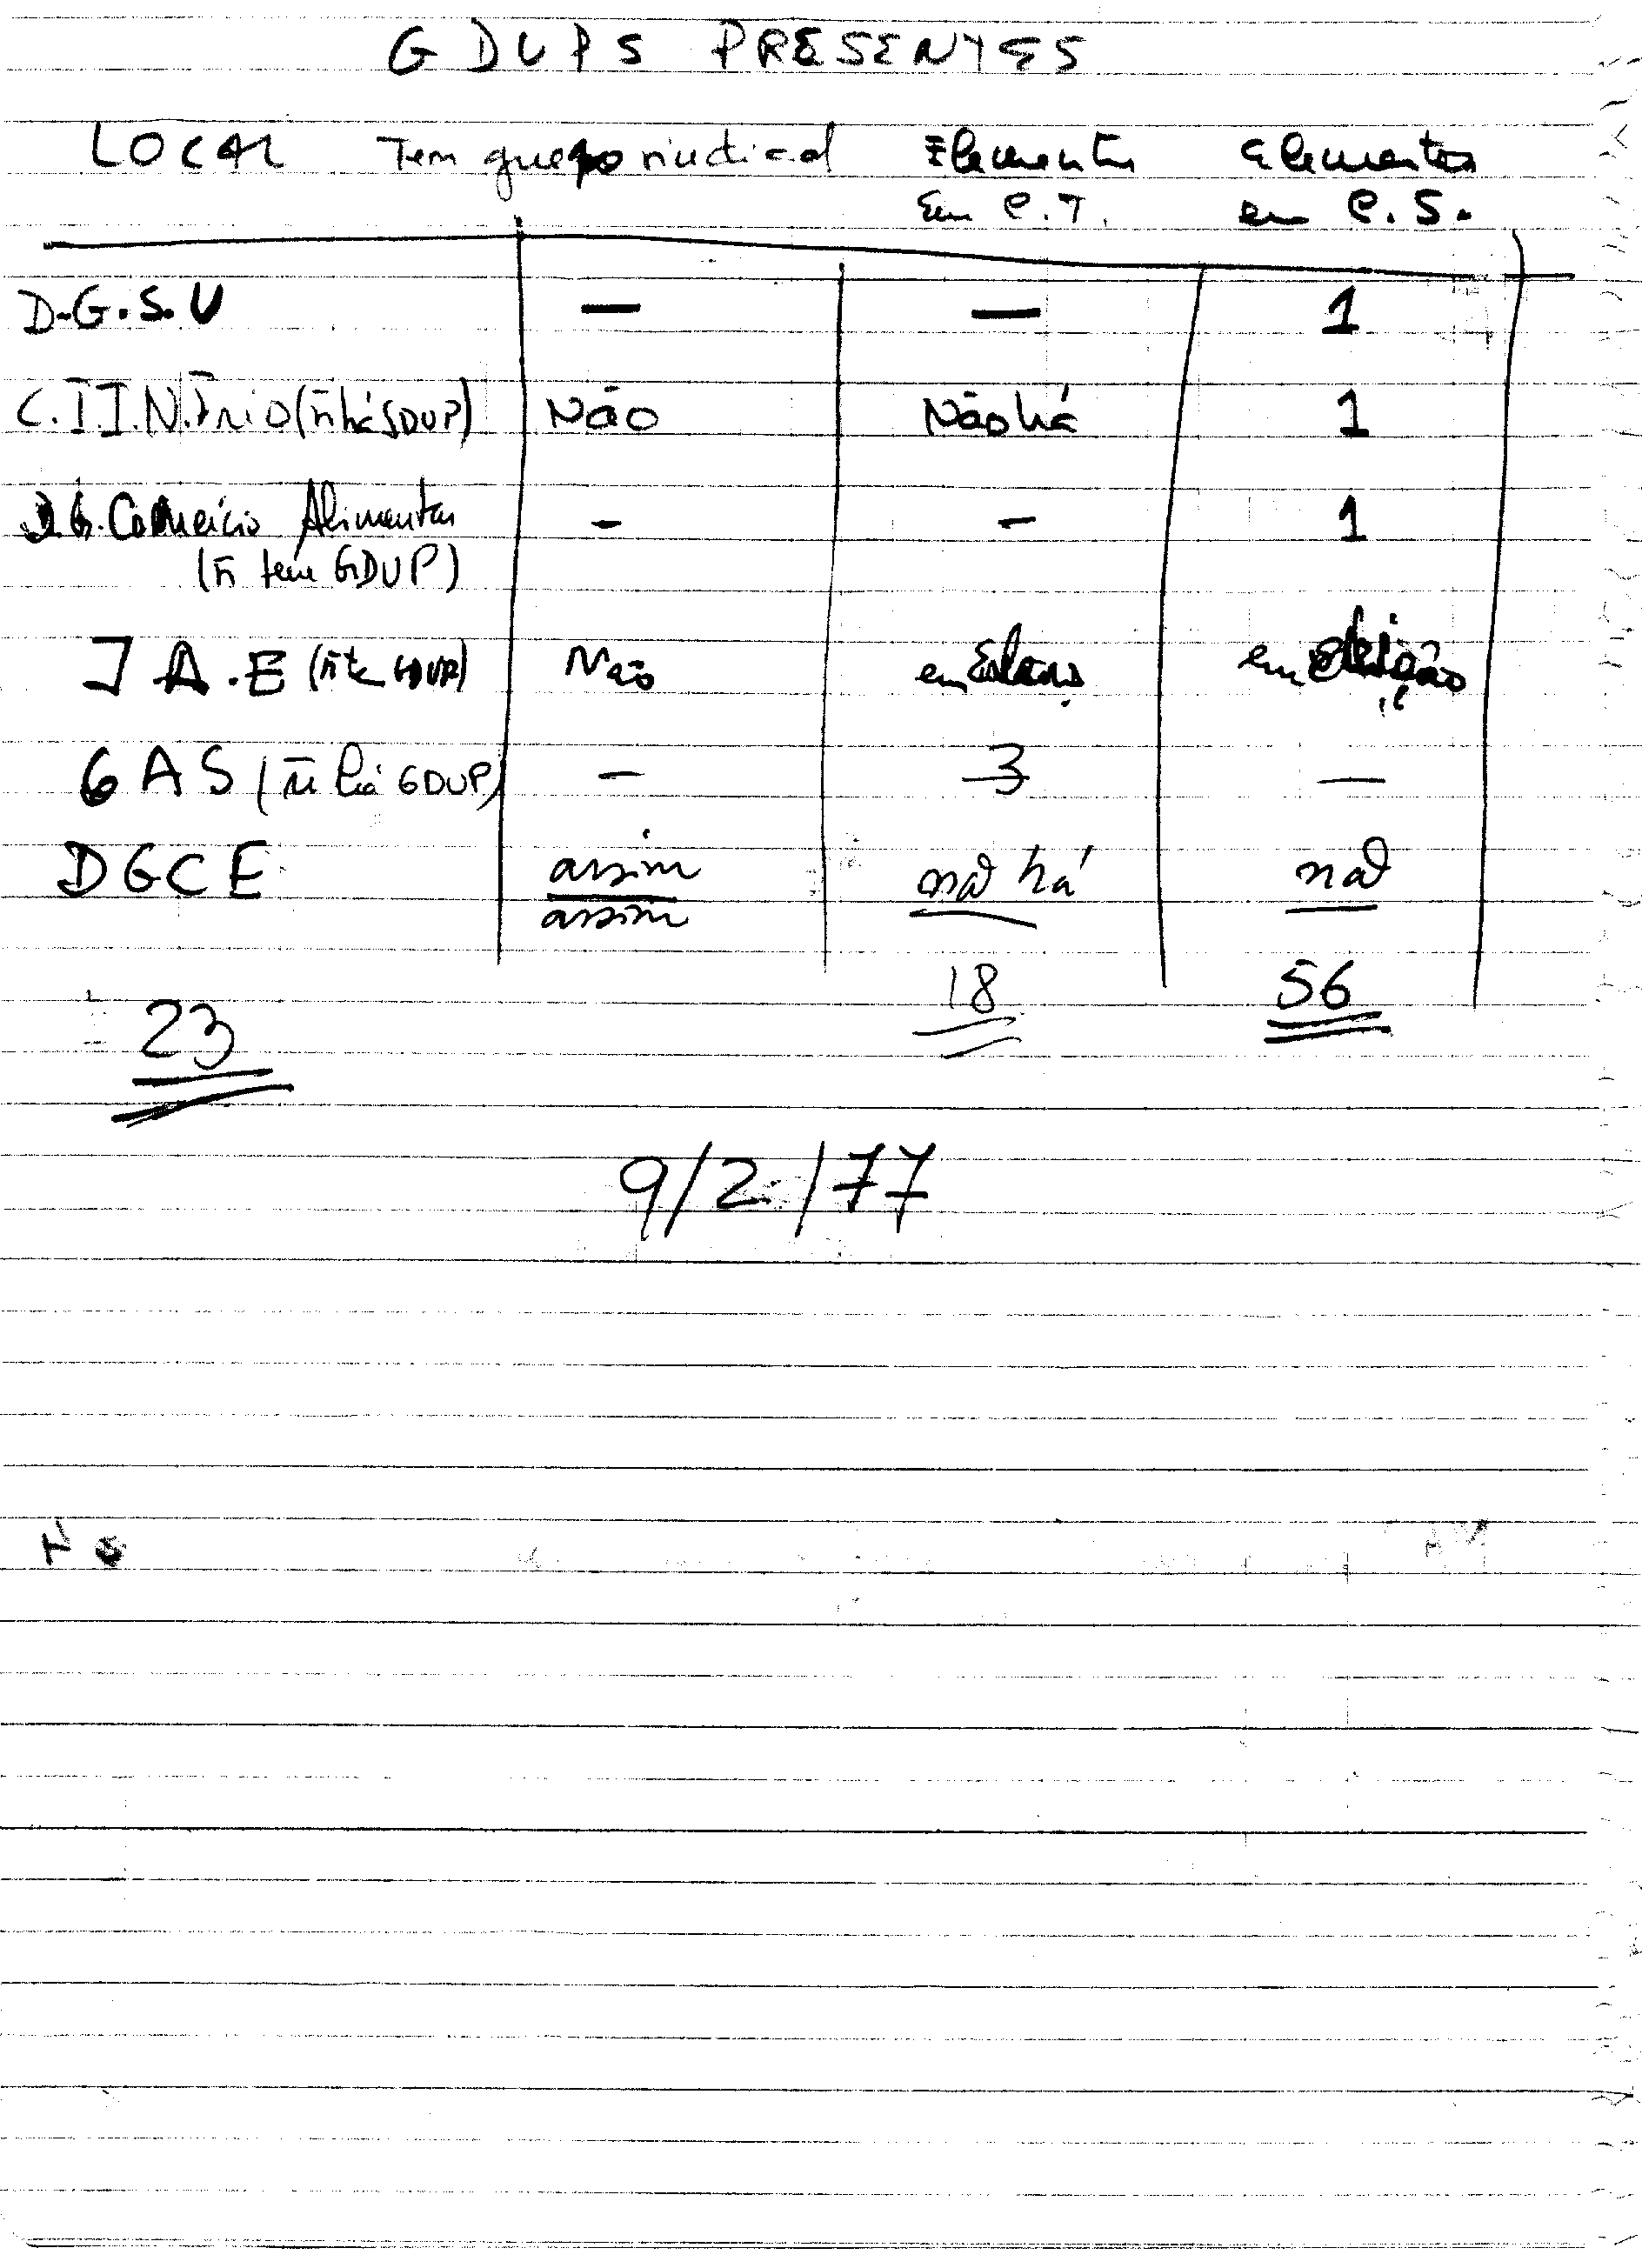 GDUPS PRESENTES
LOCAL Tem grupo sindical Elementos Elementos
Em C.T. em C.S.
D.G.S.U — — 1
C.I.I.N.Frio (ñ há GDUP) Não Não há 1
D.G. Comércio Alimentar - - 1
(ñ tem GDUP)
J A.E (ñ tem GDUP) Não em eleição
GAS (ñ há GDUP) — 3 —
DGCE assim não há não
assim
18 56
23
9/2/77